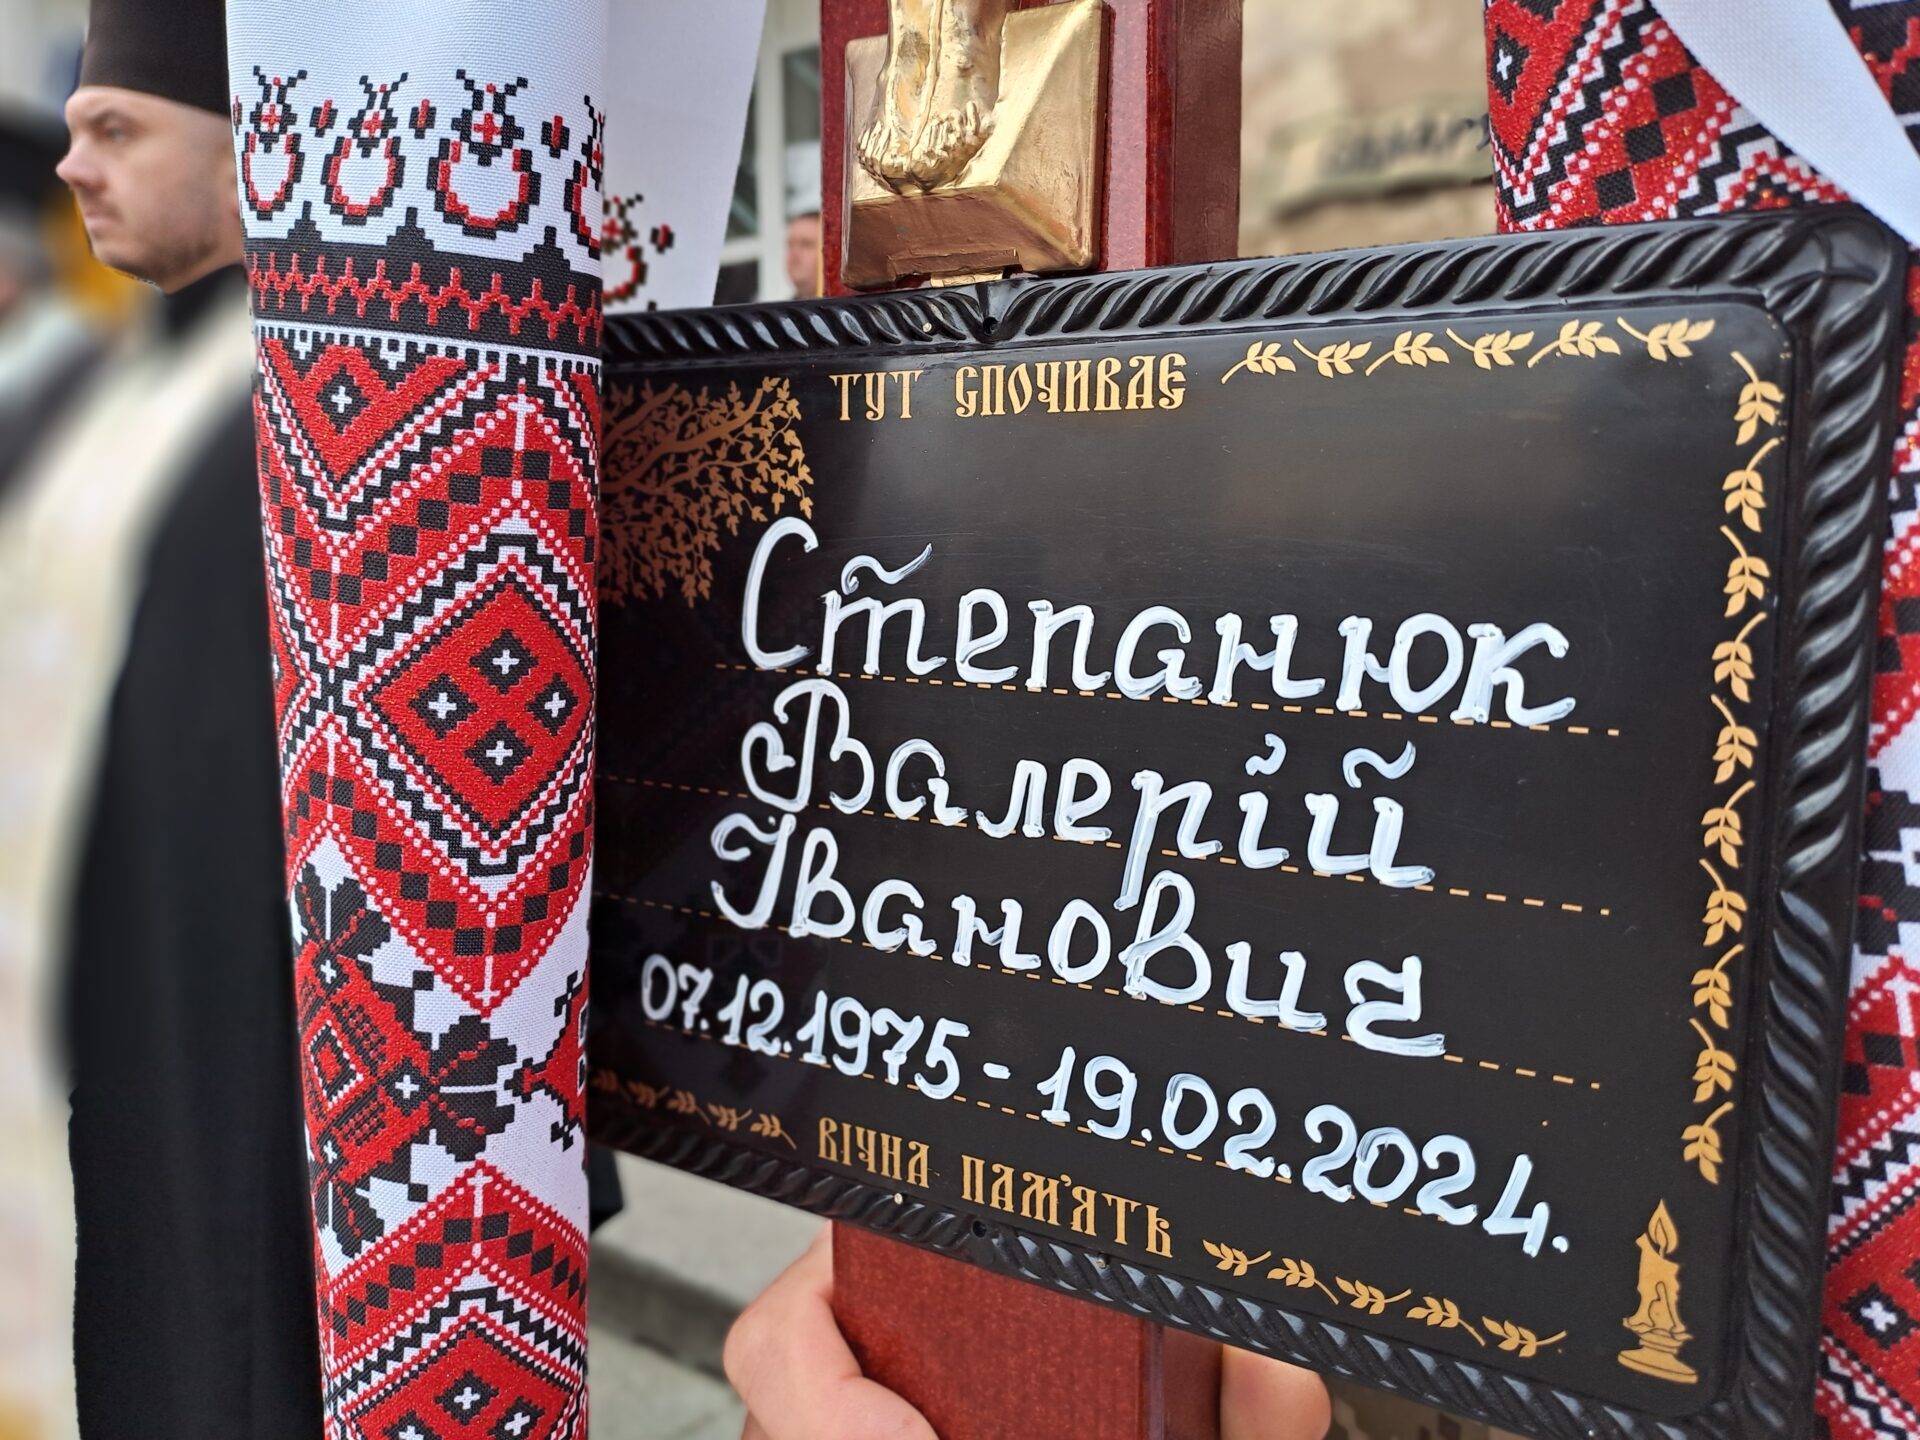 ТУТ СПОЧИВАЄ
Степанюк
Валерій
Іванович
07.12.1975 - 19.02.2024.
ВІЧНА ПАМ'ЯТЬ